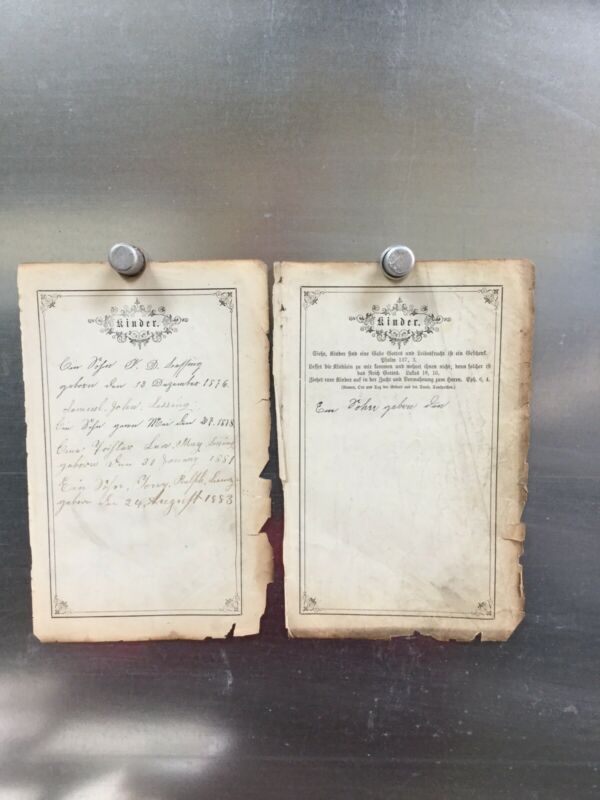 Kinder.
Ein Sohn F. D. Lessing
geboren den 13 Dezember 1876.
Samuel John Lessing
Ein Sohn geren Mai den 27. 1878
Eine Tochter May
geboren den 21 January 1881
Ein Sohn, Ralph
gebor den 24 August 1883
Kinder.
Siehe, Kinder sind eine Gabe Gottes und Leibesfrucht ist ein Geschenk.
Psalm 127, 3.
Lasset die Kindlein zu mir kommen und wehret ihnen nicht, denn solcher ist
das Reich Gottes. Lukas 18, 16.
Ziehet eure Kinder auf in der Zucht und Vermahnung zum Herrn. Eph. 6, 4.
(Namen, Ort und Tag der Geburt und der Taufe, Taufzeugen.)
Ein Sohn geboren den